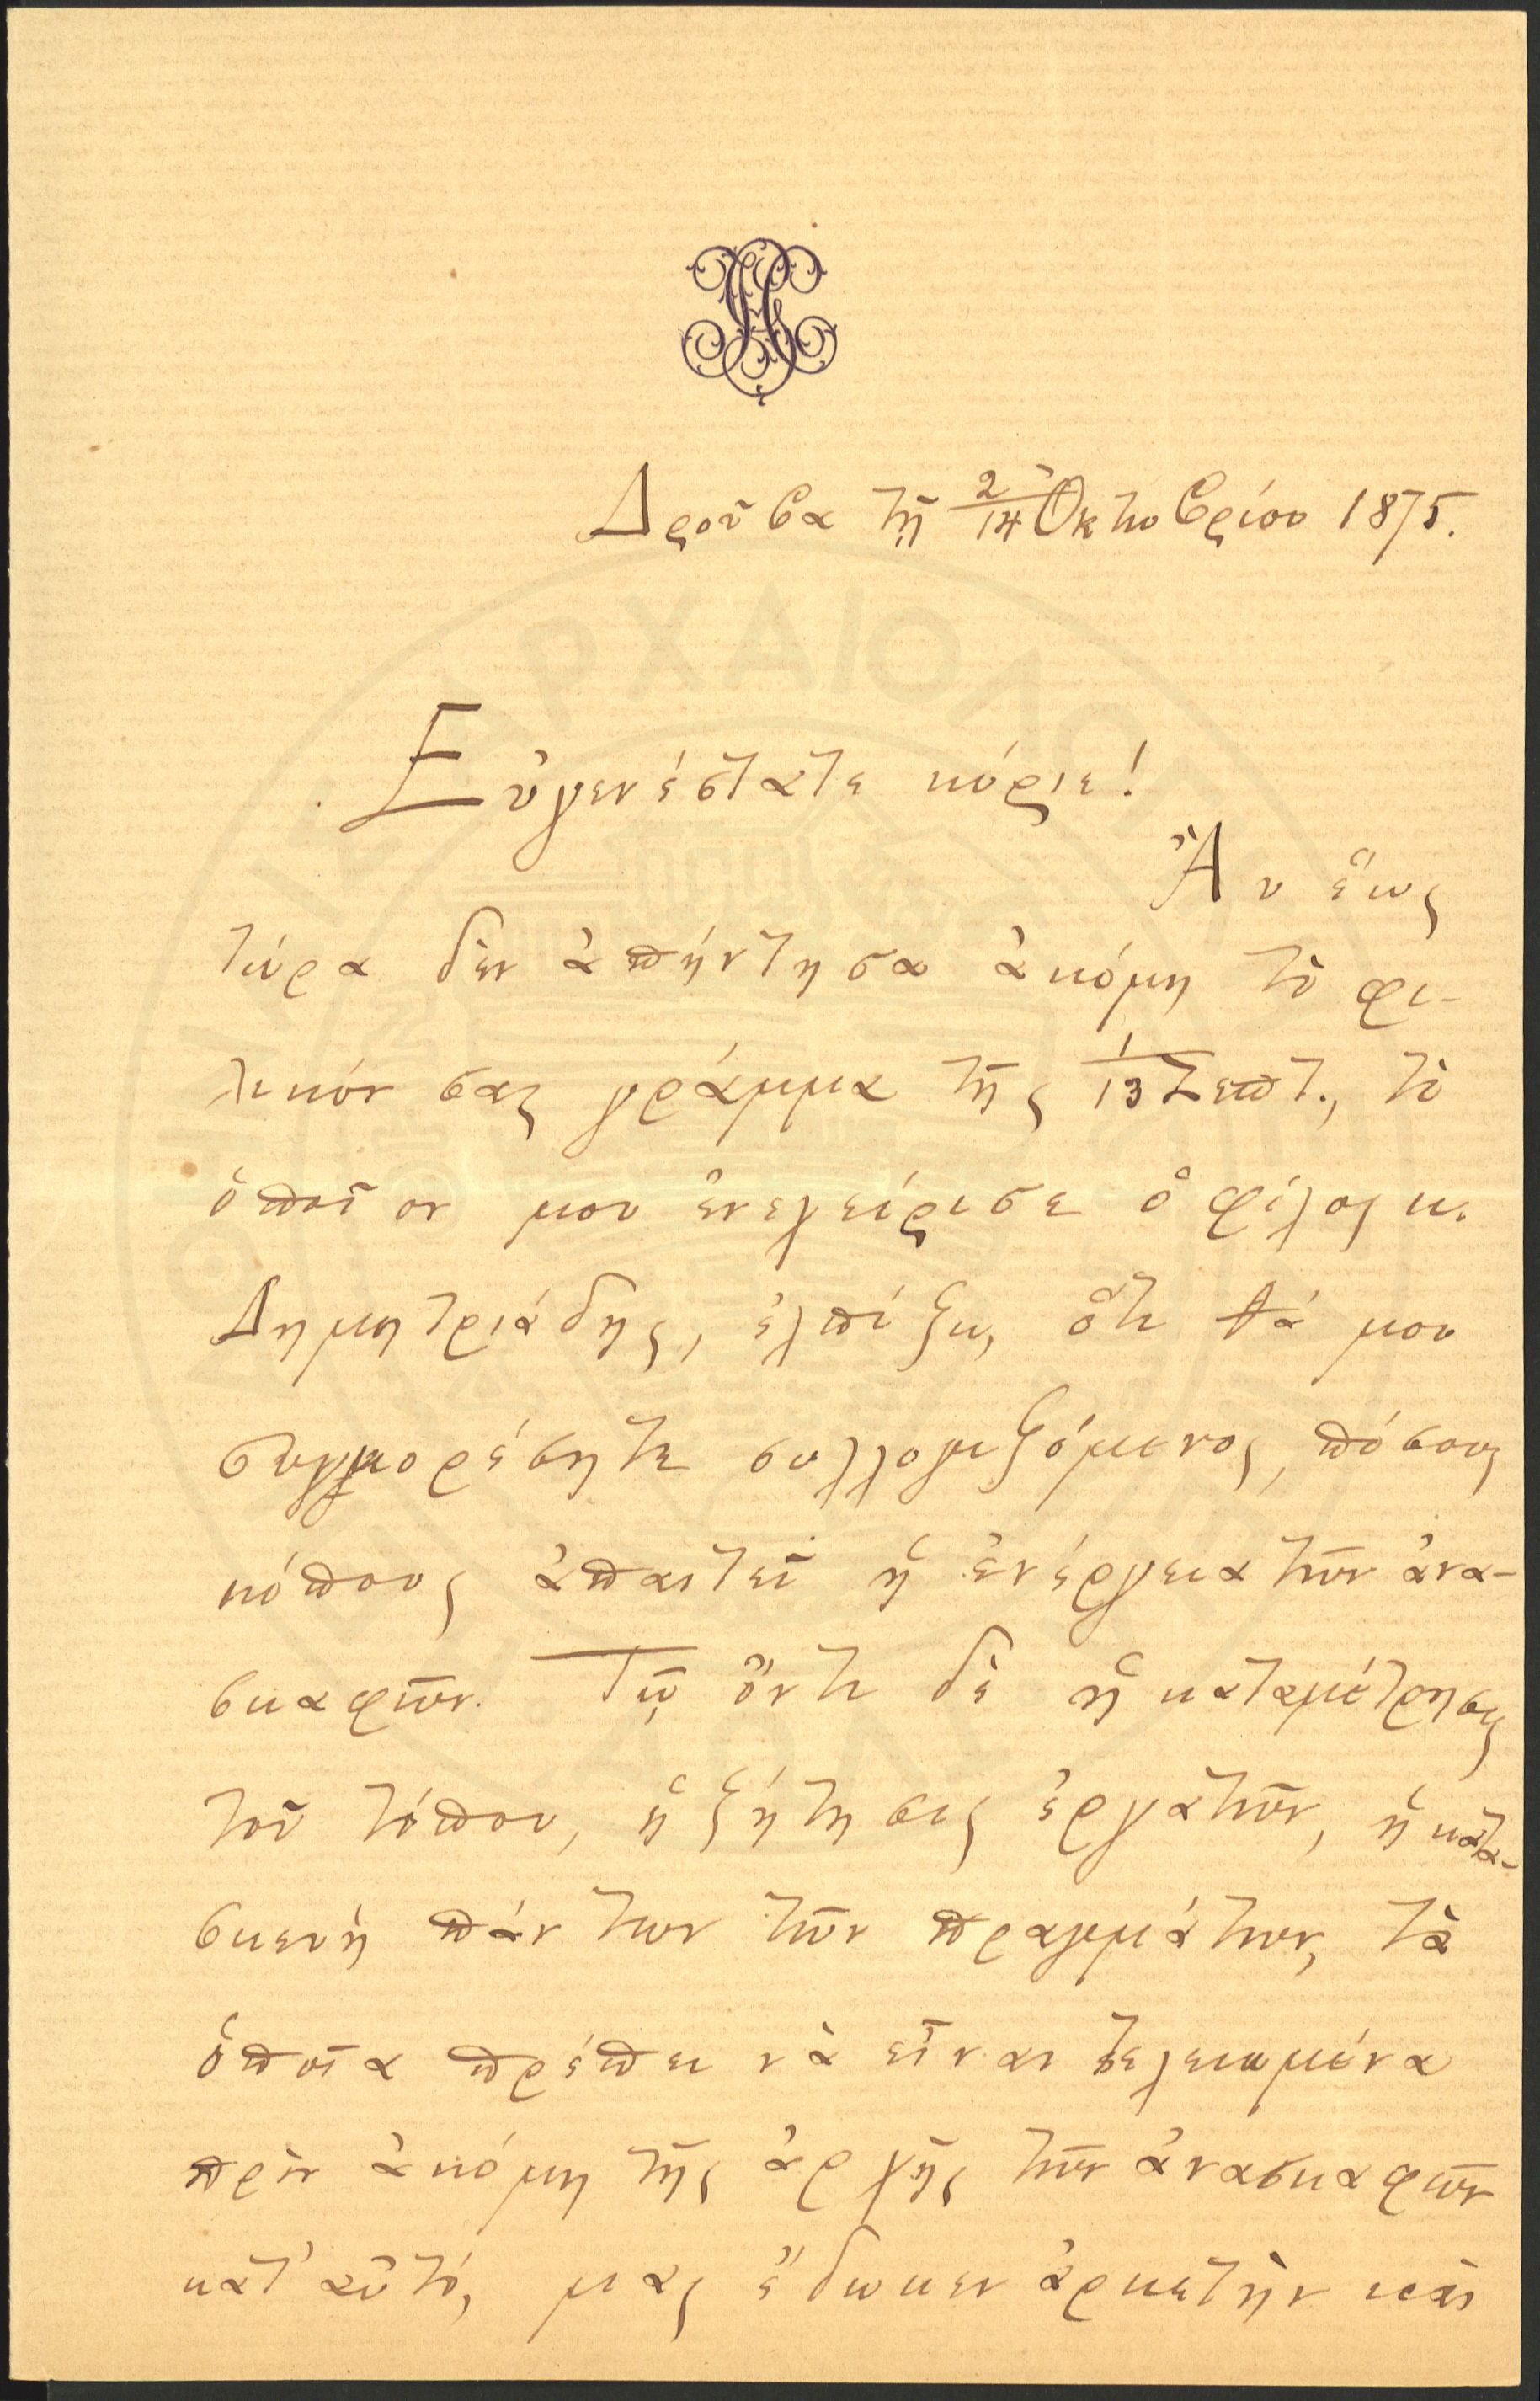 Δροῦβα τῇ 2/14 Ὀκτωβρίου 1875.
Εὐγενέστατε κύριε!
Ἂν ἕως
τώρα δὲν ἀπήντησα ἀκόμη τὸ φι-
λικόν σας γράμμα τῆς 1/13 Σεπτ., τὸ
ὁποῖον μου ἐνεχείρισε ὁ φίλος κ.
Δημητριάδης, ἐλπίζω, ὅτι θά μου
συγχορέσητε συλλογιζόμενος, πόσους
κόπους ἀπαιτεῖ ἡ ἐνέργεια τῶν ἀνα-
σκαφῶν. Τῷ ὄντι δὲ ἡ καταμέτρησις
τοῦ τόπου, ἡ ζήτησις ἐργατῶν, ἡ κατα-
σκευὴ πάντων τῶν πραγμάτων, τὰ
ὁποῖα πρέπει νὰ εἶναι τελειωμένα
πρὶν ἀκόμη τῆς ἀρχῆς τῶν ἀνασκαφῶν
κατ' αὐτό, μας ἔδωκεν ἀρκετὴν καὶ